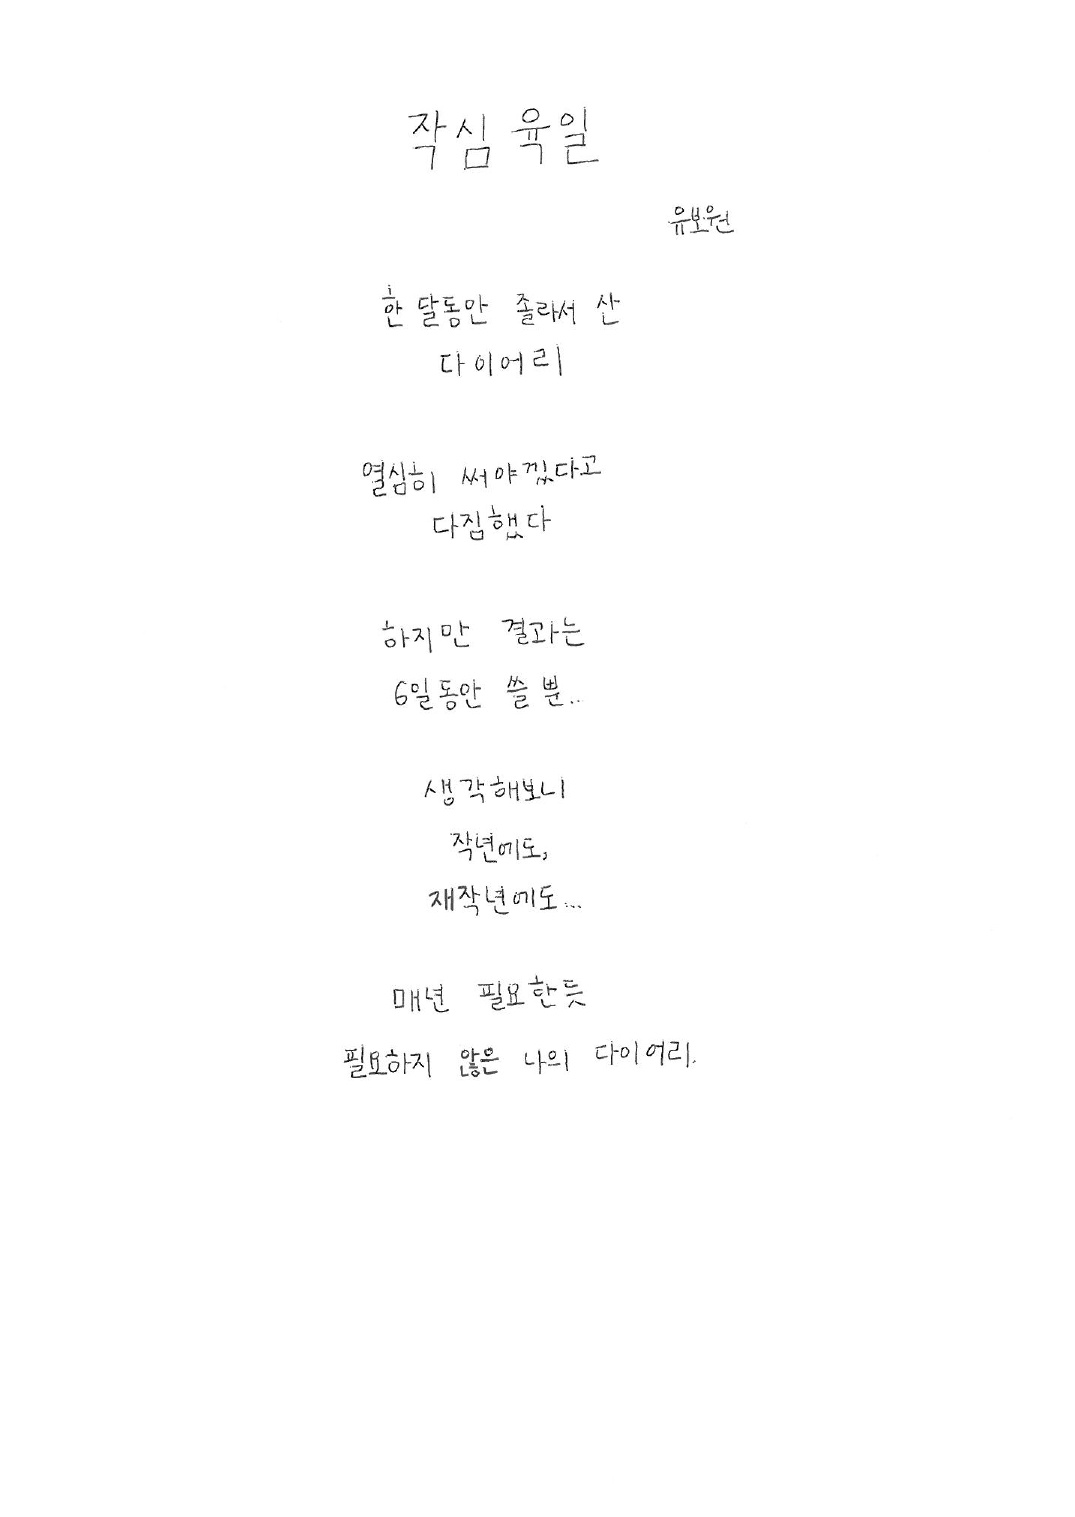 작심 육일
유보원
한 달동안 졸라서 산
다이어리
열심히 써야겠다고
다짐했다
하지만 결과는
6일동안 쓸 뿐..
생각해보니
작년에도,
재작년에도...
매년 필요한듯
필요하지 않은 나의 다이어리.